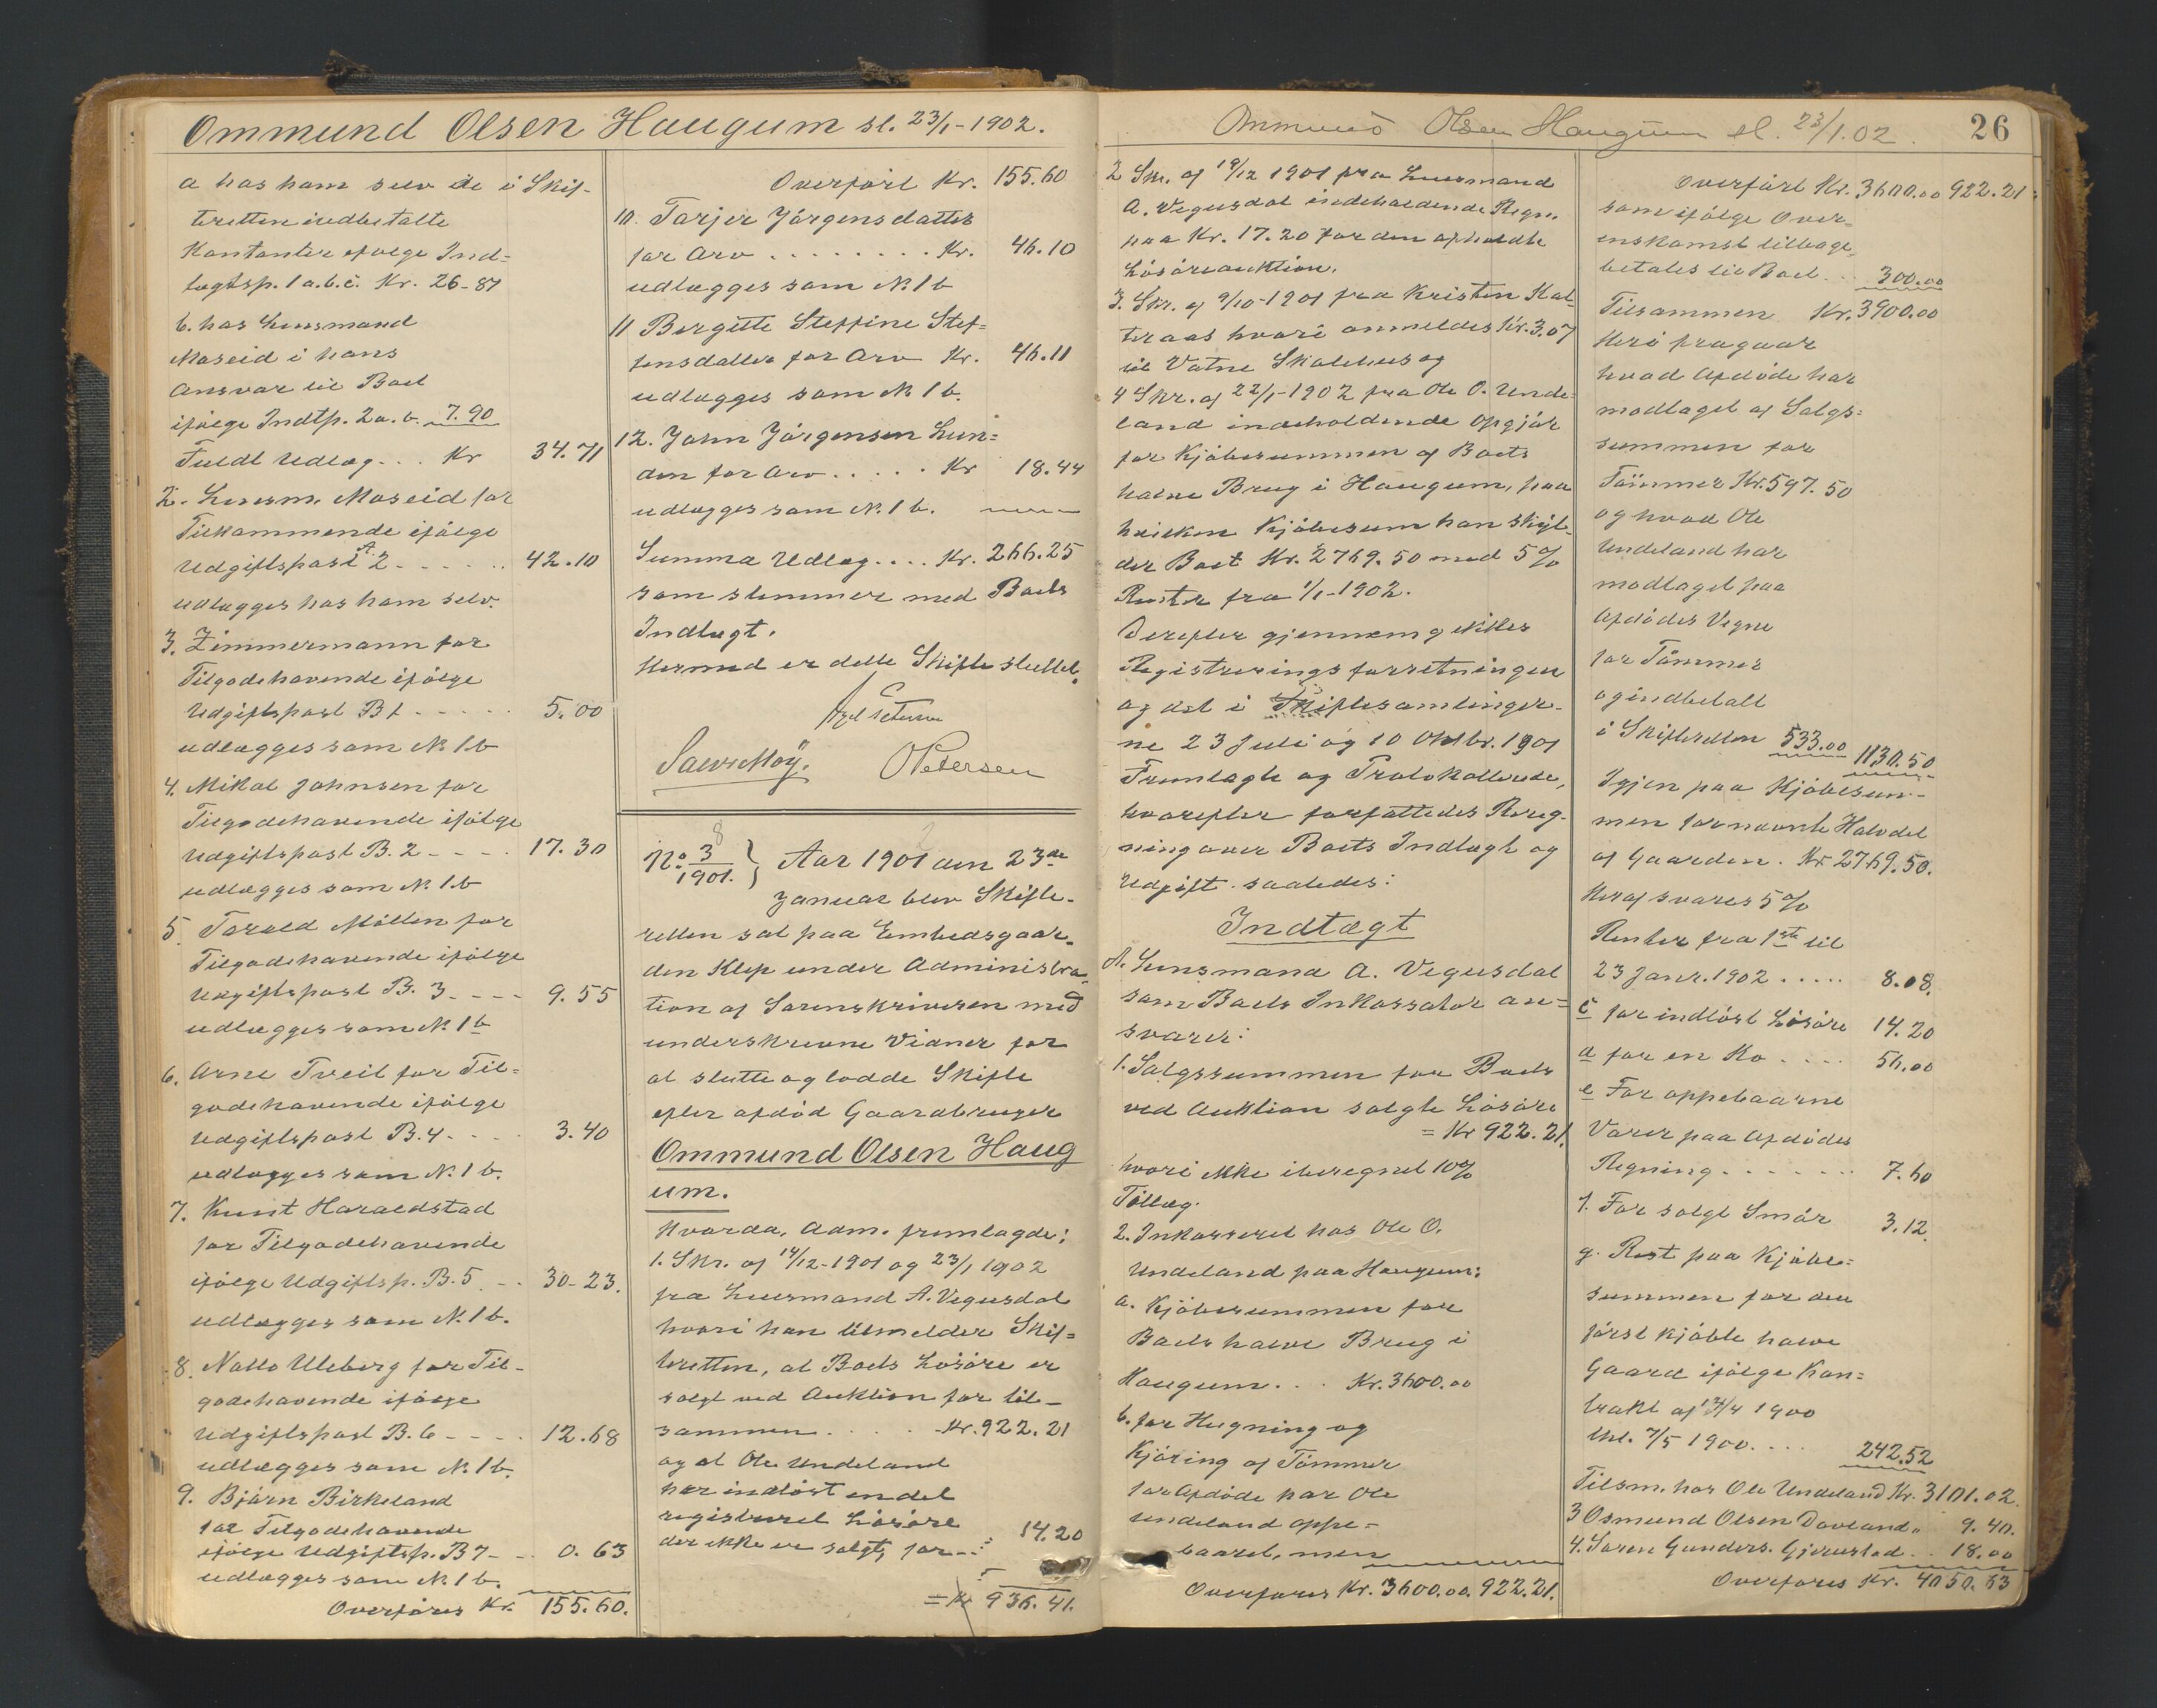 Ommund Olsen Haugum sl. 23/1-1902.
a hos ham selv de i Skif-
teretten indbetalte
Kontanter ifølge Ind-
tægtsp. 1 a. b. c. Kr. 26-81
b. hos Lensmand
Moseid i hans
Ansvar til Boet
ifølge Indtp. 2a. b. 7.90
Fuldt Udlæg... Kr 34.71
2. Lensm. Moseid for
Tilkommende ifølge
Udgiftspost A. 2 - - - - - 42.10
udlægges hos ham selv.
3. Zimmermann for
Tilgodehavende ifølge
Udgiftspost B 1 - - - - - 5.00
udlægges som No. 1.b
4. Mikal Johnsen for
Tilgodehavende ifølge
Udgiftspost B. 2 - - - - 17.30
udlægges som No. 1.b
5. Torald Møllen for
Tilgodehavende ifølge
Udgiftspost B. 3 - - - - 9.55
udlægges som No. 1 b
6. Arne Tveit for Til-
godehavende ifølge
Udgiftspost B. 4 - - - - 3.40
udlægges som No. 1 b.
7. Knut Haraldstad
for Tilgodehavende
ifølge Udgiftsp. B. 5 - - 30-23.
udlægges som No. 1 b.
8. Uleberg for Til-
godehavende ifølge
Udgiftspost B. 6 - - - - 12.68
udlægges som No. 1 b.
9. Bjørn Birkeland
for Tilgodehavende
ifølge Udgiftsp. B 7 - - 0.63
udlægges som No. 1 b.
Overføres Kr. 155.60.
Overført Kr. 155.60
10. Tarjer Jørgensdatter
for Arv . . . . . . . . Kr. 46.10
udlægges som No. 1 b
11 Bergitte Steffine Stef-
fensdatter for Arv Kr. 46.11
udlægges som No. 1 b.
12. John Jørgensen Lun-
den for Arv . . . . . Kr 18.44
udlægges som No. 1 b.
Summa Udlæg.... Kr. 266.25
som stemmer med Boets
Indtægt.
Hermed er dette Skifte sluttet.
O Pedersen
No. 3/1901. } Aar 1901 den 23de
8
Januar blev Skifte-
retten sat paa Embedsgaar-
den Klep under Administra-
tion af Sorenskriveren med
underskrevne Vidner for
at slutte og lodde Skifte
efter afdød Gaardbruger
Ommund Olsen Haug
um.
Hvorda, Adm. fremlagde:
1. Skr. af 14/12-1901 og 23/1 1902
fra Lensmand A. Vegusdal
hvori han tilmelder Skif-
teretten, at Boets Løsøre er
solgt ved Auktion for til-
sammen . . . . . Kr. 922.21
og at Ole Undeland
har indløst endel
registreret Løsøre
der ikke er solgt, for - - 14.20
= Kr 936.41.
Ommund Olsen Haugum sl. 23/1.02. 26
2 Skr. af 19/12 1901 fra Lensmand
A. Vegusdal indeholdende Regn.
paa Kr. 17.20 for den afholdte
Løsøreauktion.
3. Skr. af 9/10-1901 fra Kristen Kal-
teraas hvori anmeldes Kr. 3.07
til Vatne Skolehus og
4 Skr. af 22/1-1902 fra Ole O. Unde-
land indeholdende Opgjør
for Kjøbesummen af Boets
halve Brug i Haugum, paa
hvilken Kjøbesum han skyl-
der Boet Kr. 2769.50 med 5%
Renter fra 1/1-1902.
Derefter gjennemgikkes
Registreringsforretningen
og det i Skiftesamlinger-
ne 23 Juli og 10 Oktbr. 1901
Fremlagte og Protokollerede,
hvorefter forfattedes Reg-
ning over Boets Indtægt og
Udgift saaledes:
Indtægt
A. Lensmand A. Vegusdal
som Boets Inkassator an-
svarer:
1. Salgssummen for Boets
ved Auktion solgte Løsøre
= Kr 922.21.
hvori ikke iberegnet 10%
Tillæg.
2. Inkasseret hos Ole O.
Undeland paa Haugum:
a. Kjøbesummen for
Boets halve Brug i
Haugum. . . Kr. 3600.00
b. for Hugning og
Kjøring af Tømmer
for Afdøde har Ole
Undeland oppe-
baaret, men
Overføres Kr. 3600.00. 922.21.
Overført Kr. 3600.00 922.21.
som ifølge Over-
enskomst tilbage-
betales til Boet . . 300.00
Tilsammen Kr. 3900.00
Heri fragaar
hvad Afdøde har
modtaget af Salgs-
summen for
Tømmer Kr. 597.50
og hvad Ole
Undeland har
modtaget paa
Afdødes Vegne
for Tømmer
og indbetalt
i Skifteretten 533.00 1130.50
Igjen paa Kjøbesum-
men for nævnte Halvdel
af Gaarden. Kr 2769.50.
Heraf svares 5%
Renter fra 1ste til
23 Janr. 1902 . . . . . 8.08.
c for indløst Løsøre 14.20
d for en Ko . . . . 56.00
e For oppebaarne
Varer paa Afdødes
Regning . . . . . . . 7.60
f. For solgt Smør 3.12.
g. Rest paa Kjøbe-
summen for den
først kjøbte halve
Gaard ifølge Kon-
trakt af 24/4 1900
thl. 7/5 1900 . . . . 242.52
Tilsm. hos Ole Undeland Kr. 3101.02.
3 Osmund Olsen Dovland " 9.40.
4. Søren Gunders. Gjerustad . . 18.00
Overføres Kr. 4050.63